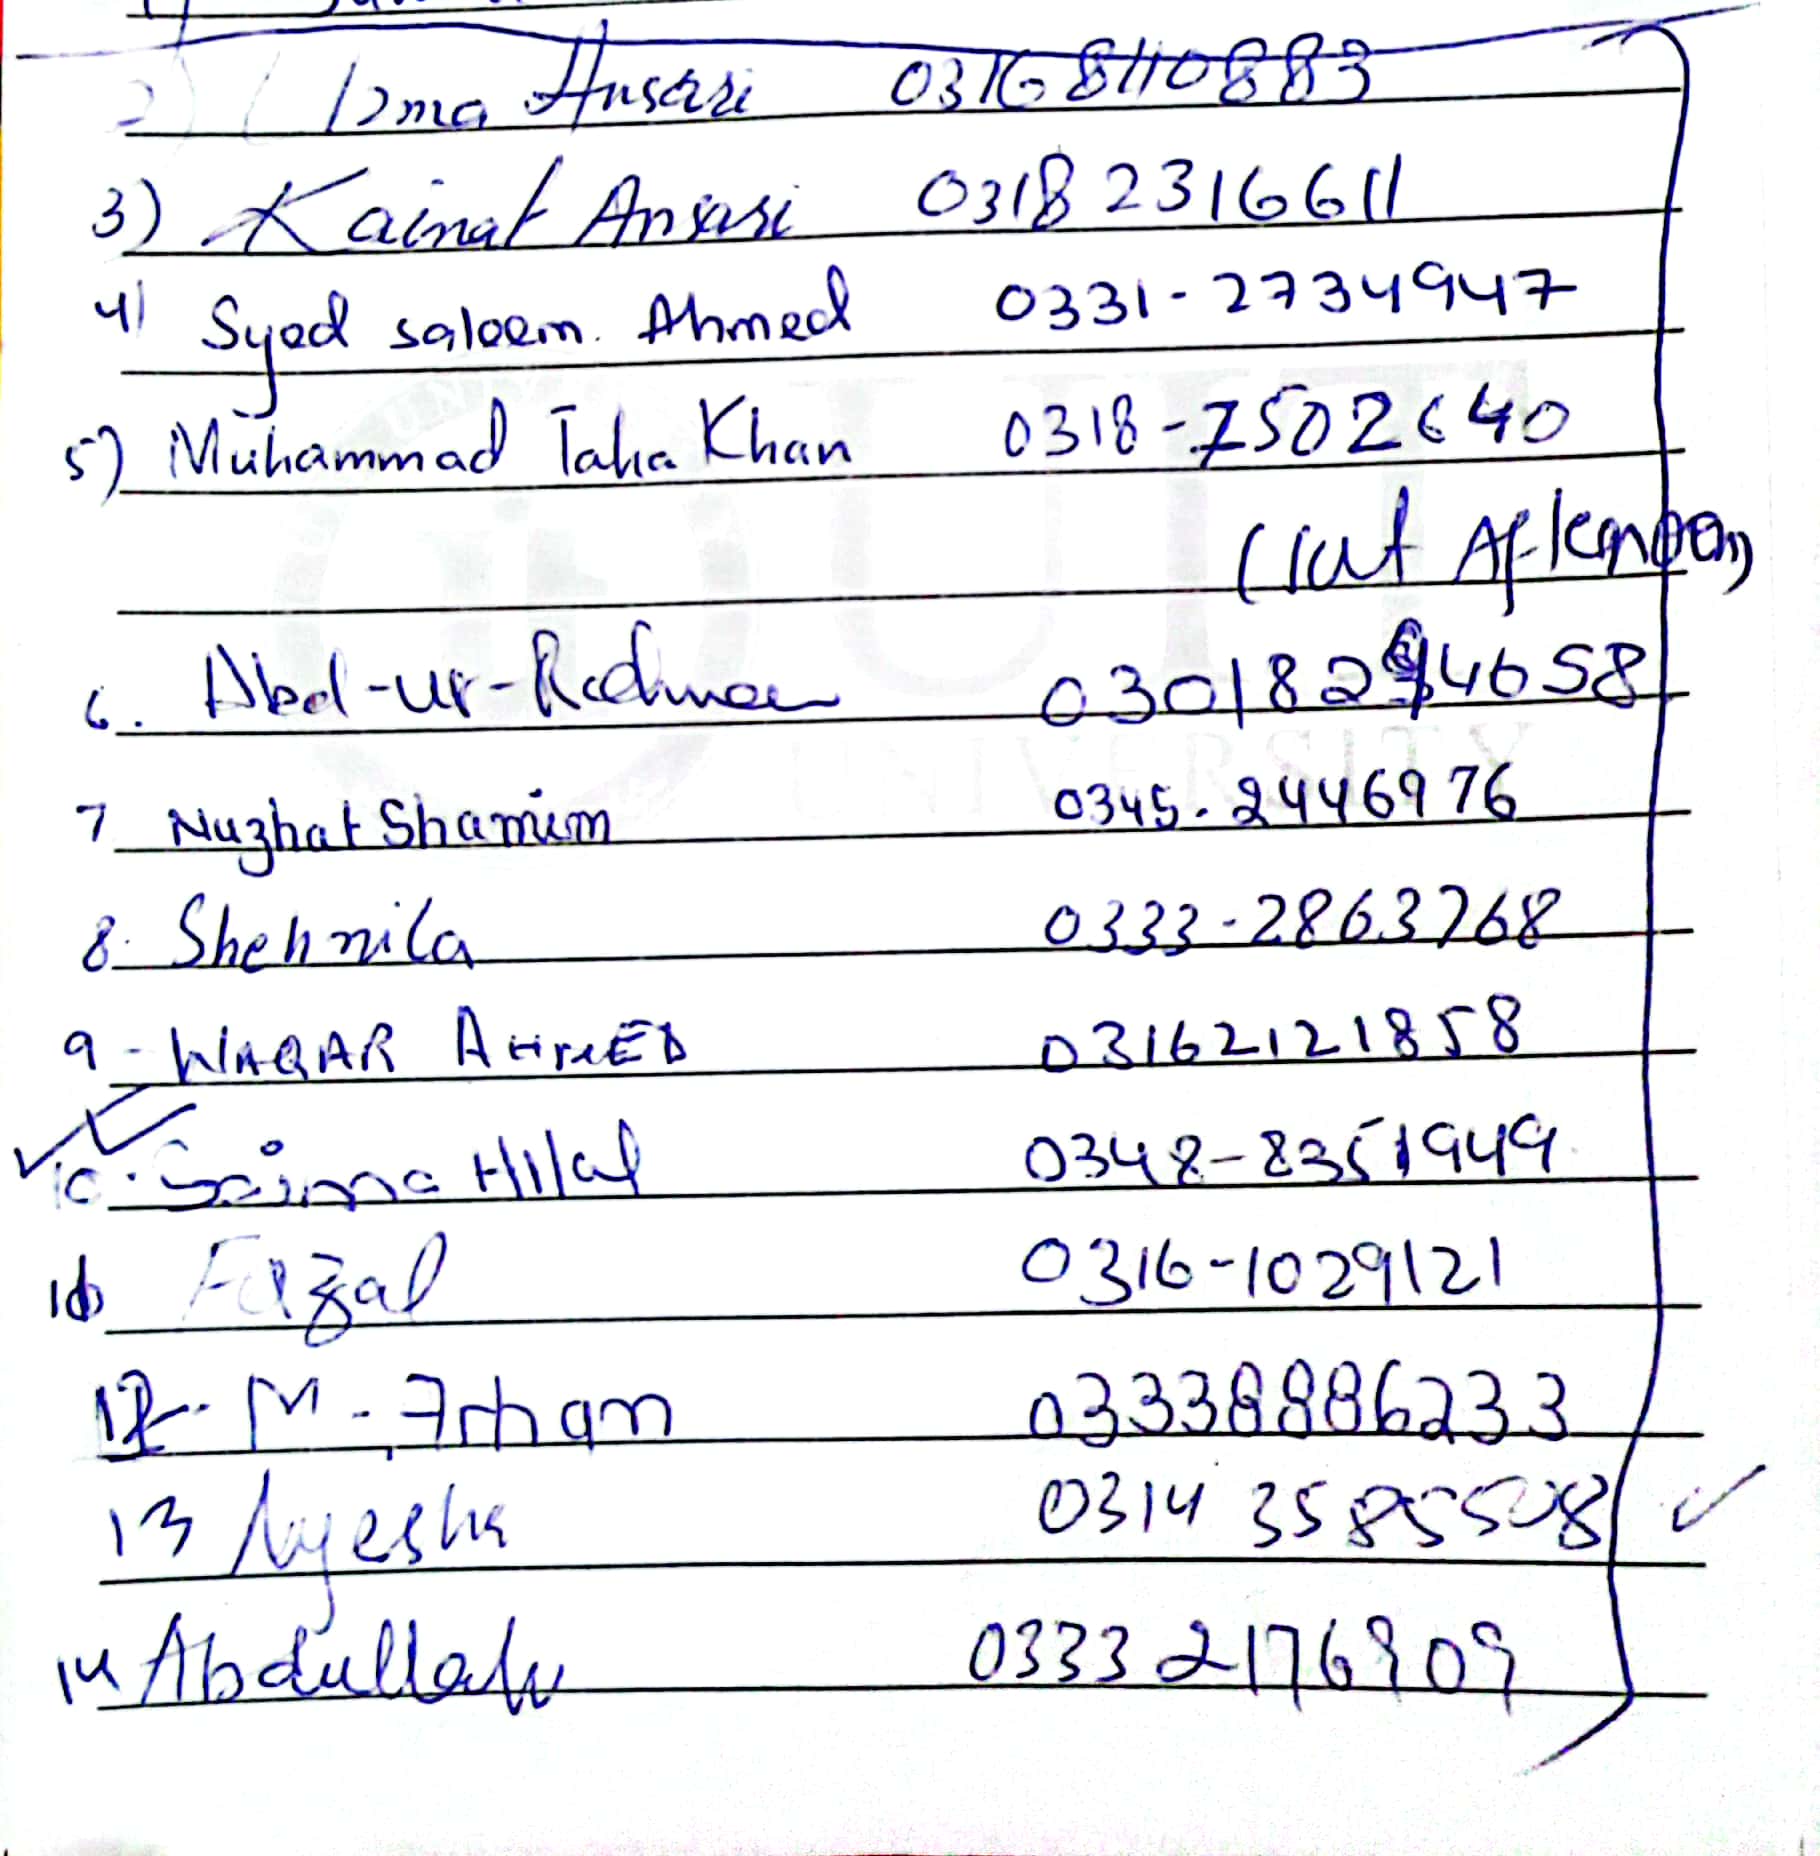 2) Uzma Ansari 03168110883
3) Kainat Ansari 0318 2316611
4) Syed saleem. Ahmed 0331-2734947
5) Muhammad Taha Khan 0318-7502640
(Sat Afternoon)
6. Abd-ur-Rahman
7 Nuzhat Shamim 0345-2446976
8. Shehnila 0333-2863768
9 - WAQAR AHMED 03162121858
10. Saima Hilal 0348-8351949
UIT
UNIVERSITY
Fazal 0316-1029121
12 - M - Irhan 03338886233
13 Ayesha 0314 3585508
14 Abdullah 0333 2176909